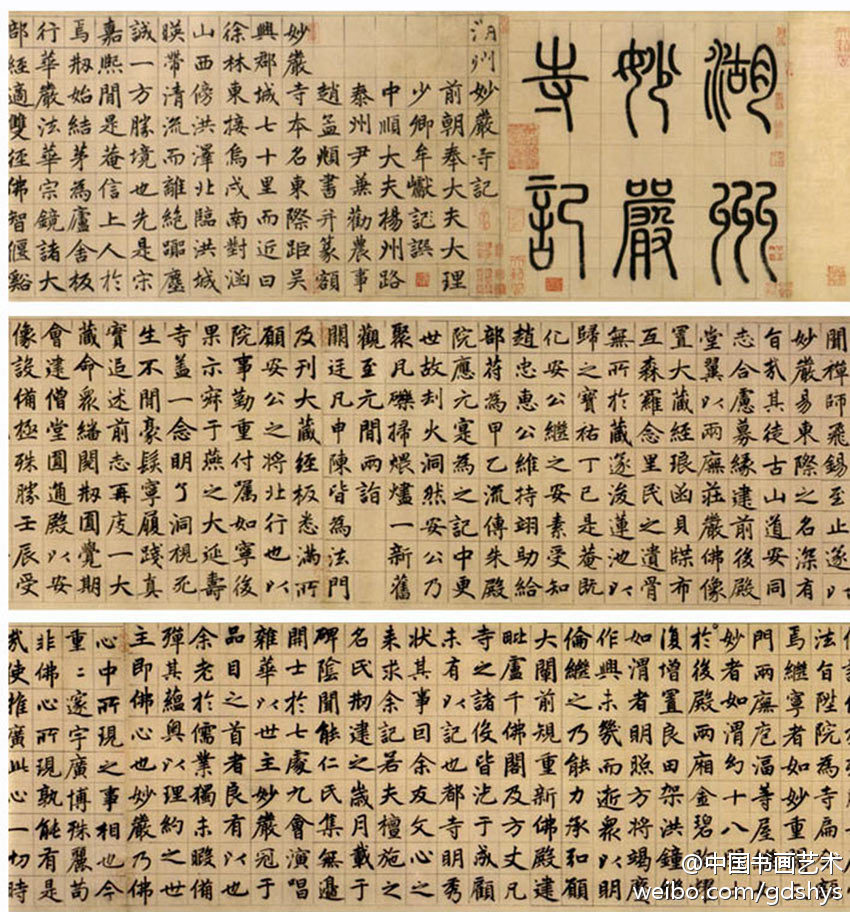 湖州
妙嚴
寺記
湖州妙嚴寺記
前朝奉大夫大理
少卿牟巘記譔
中順大夫楊州路
泰州尹兼勸農事
趙孟頫書并篆額
妙嚴寺本名東際距吳
興郡城七十里而近曰
徐林東接烏戍南對涵
山西傍洪澤北臨洪城
暎帶清流而離絶囂塵
誠一方勝境也先是宋
嘉熙間是菴信上人於
焉剏始結茅為廬舍板
行華嚴法華宗鏡諸大
部經適雙徑佛智偃谿
聞禪師飛錫至止遂以
妙嚴易東際之名深有
旨哉其徒古山道安同
志合慮募緣建前後殿
堂翼以兩廡莊嚴佛像
置大藏經琅函貝牒布
互森羅念里民之遺骨
無所於藏遂浚蓮池以
歸之寶祐丁巳是菴既
化安公繼之安素受知
趙忠惠公維持翊助給
部苻為甲乙流傳朱殿
院應元寔為之記中更
世故刦火洞然安公乃
聚凡礫掃煨燼一新舊
觀至元間兩詣
闕廷凡申陳皆為法門
及刊大藏經板悉滿所
願安公之將北行也以
院事勤重付囑如寧後
果示寂于燕之大延壽
寺蓋一念明了洞視死
生不閒豪髮寧履踐真
實追述前志再度一大
藏命衆繙閱剏圓覺期
會建僧堂圓通殿以安
像設備極殊勝壬辰受
法旨陞院為寺扁
焉繼寧者如妙重
門兩廡庖湢等屋
妙者如渭約十八
於後殿兩廂金碧
復增置良田架洪鐘
如渭者明照方將竭
作興未幾而逝衆以明
倫繼之乃能力承和願
大闡前規重新佛殿建
毗盧千佛閣及方丈凡
寺之諸役皆汔于成顧
未有以記也都寺明秀
狀其事囬余友文心之
来求余記若夫檀施之
名氏剏建之歲月載于
碑陰聞能仁氏集無邊
開士於七處九會演唱
雜華以世主妙嚴冠于
品目之首者良有以也
余老於儒業獨未暇備
殫其蘊奥以理約之世
主即佛心也妙嚴乃佛
心中所現之事相也今
重二邃宇廣博殊麗苟
非佛心所現孰能有是
哉使推廣此心一切時
@中国书画艺术
weibo.com/gdshys